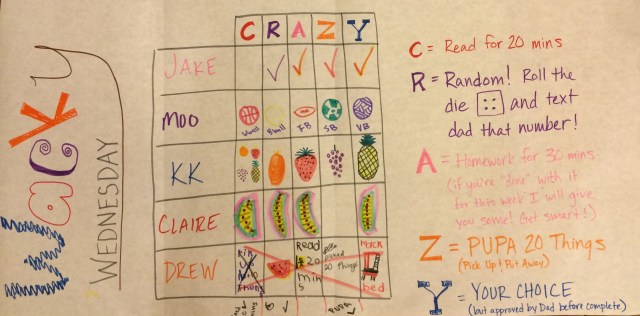 Wacky
WEDNESDAY
C R A Z Y
JAKE
MOO
FB
SB
VB
KK
CLAIRE
DREW
Read
20
min
s
20 Things
bed
PUPA
C = Read for 20 mins
R = Random! Roll the
die and text
dad that number!
A = Homework for 30 mins
(if you're "done" with it
for this week I will give
you some! Get smart!)
Z = PUPA 20 Things
(Pick Up! Put Away)
Y = YOUR CHOICE
(but approved by Dad before complete)